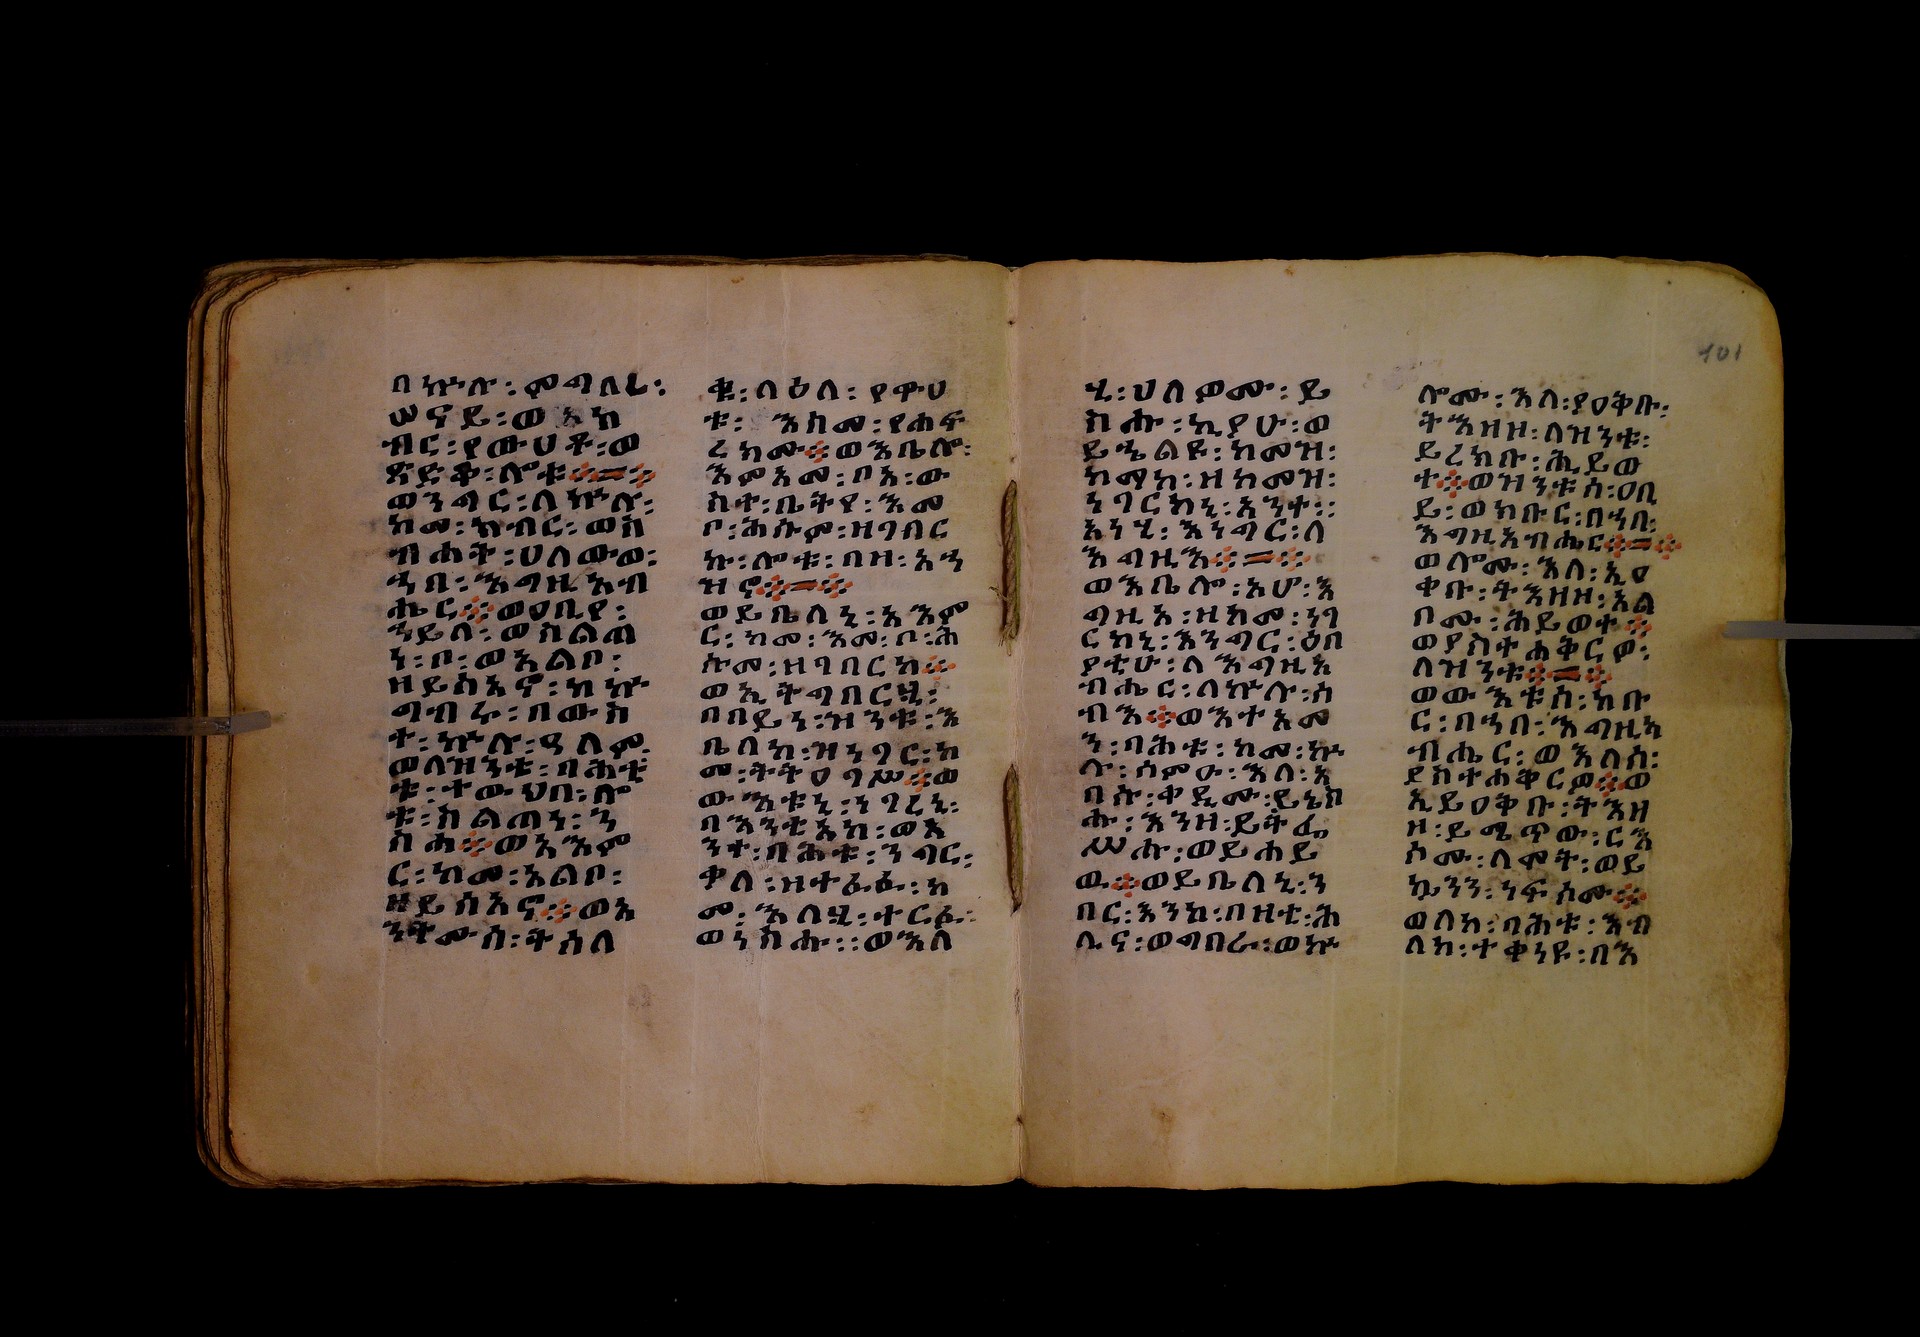 በኵሉ፡ምግባረ፡
ሠናይ፡ወእከ
ብር፡የውሀቶ፡ወ
ጸድቆ፡ሎቱ፨=፨
ወንግር፡ለኵሉ፡
ከመ፡ክብር፡ወስ
ብሐት፡ሀለውወ፡
ኀበ፡እግዚአብ
ሔር፨ወዐቢየ፡
ኀይለ፡ወስልጣ
ነ፡ቦ፡ወአልቦ፡
ዘይስእኖ፡ከኵ
ግብሩ፡በውስ
ተ፡ኵሉ፡ዓለም
ወለዝንቱ፡ባሕቲ
ቱ፡ተውህበ፡ሎ
ቱ፡ስልጣን፡ን
ስሐ፨ወአእም
ር፡ከመ፡አልቦ፡
ዘይስእኖ፨ወእ
ንትሙሰ፡ትሰለ
ቁ፡ላዕለ፡የዋሀ
ቱ፡እስመ፡የሐፍ
ረክሙ፨ወእቤሎ፡
እምእመ፡ቦአ፡ው
ስተ፡ቤትየ፡እመ
ቦ፡ሕሱም፡ዘገብር
ኩ፡ሎቱ፡በዘ፡አኀ
ዝኖ፨=፨
ወይቤለኒ፡አእም
ር፡ከመ፡እመ፡ቦ፡ሕ
ሱመ፡ዘገበርከ፨
ወኢትግበርሂ፡
በበይነ፡ዝንቱ፡እ
ቤለከ፡ዝነገር፡ከ
መ፡ትትዐገሥ፨ወ
ውእቱኒ፡ነገረኒ፡
በእንቲአከ፡ወእ
ንተ፡ባሕቱ፡ንግር፡
ቃለ፡ዘተፈፈ፡ከ
መ፡እለሂ፡ተርፉ፡
ወነስሑ፡፡ወእለ
ሂ፡ሀለዎሙ፡ይ
ስሑ፡ኪያሁ፡ወ
ይኄልዩ፡ከመዝ፡
ከማከ፡ዘከመዝ፡
ነገርከኒ፡አንተ፡፡
አነሂ፡እንግር፡ለ
እግዚእ፨=፨
ወእቤሎ፡አሆ፡እ
ግዚእ፡ዘከመ፡ነገ
ርከኒ፡እንግር፡ዕበ
ያቲሁ፡ለእግዚአ
ብሔር፡ለኵሉ፡ሰ
ብእ፨ወእትአመ
ን፡ባሕቱ፡ከመ፡ኵ
ሉ፡ሰምዑ፡እለ፡አ
በሱ፡ቀዲሙ፡ይኔስ
ሑ፡እንዘ፡ይትፌ
ሥሑ፡ወይሐይ
ዉ፨ወይቤለኒ፡ን
በር፡እንከ፡በዘቲ፡ሕ
ሊና፡ወግበራ፡ወኵ
ሎሙ፡እለ፡የዐቅቡ፡
ትእዘዘ፡ለዝንቱ፡
ይረክቡ፡ሕይወ
ተ፨ወዝንቱሰ፡ዐቢ
ይ፡ወክቡር፡በኀበ፡
እግዚአብሔር፨=፨
ወሎሙ፡እለ፡ኢዐ
ቀቡ፡ትእዘዘ፡አል
ቦሙ፡ሕይወተ፨
ወያስተሐቅርዎ፡
ለዝንቱ፨=፨
ወውእቱሰ፡ክቡ
ር፡በኀበ፡እግዚአ
ብሔር፡ወእለሰ፡
ያስተሐቅርዎ፨ወ
ኢይዐቅቡ፡ትእዘ
ዘ፡ይሜጥው፡ርእ
ሶሙ፡ለሞት፡ወይ
ኴንን፡ነፍሶሙ፨
ወለከ፡ባሕቱ፡እብ
ለከ፡ተቀነዩ፡በእ
101